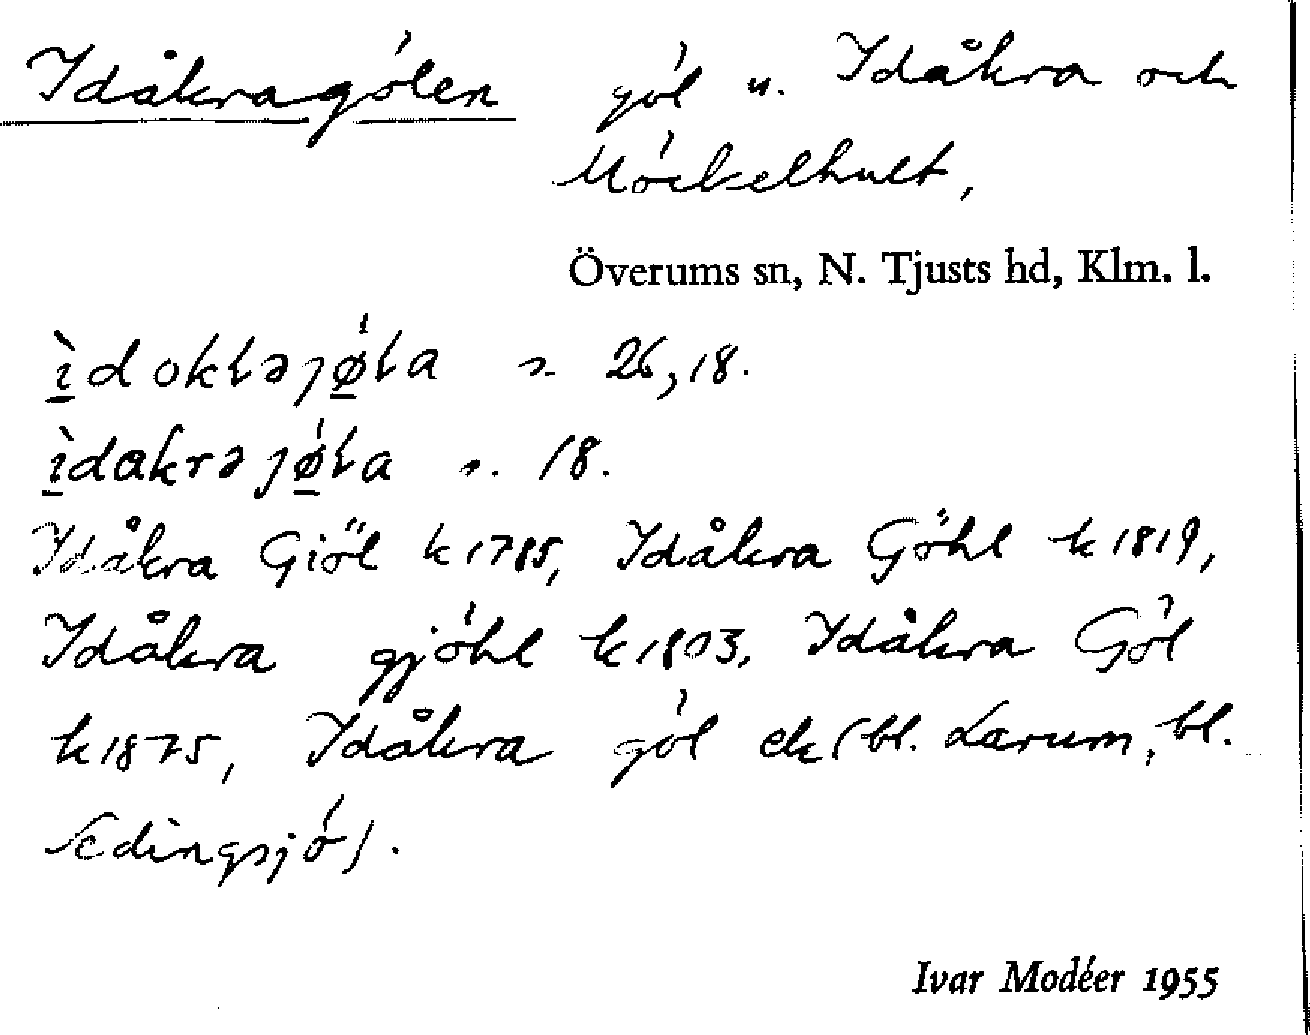 Idåkragölen göl u. Idåkra och
Möckelhult,
Överums sn, N. Tjusts hd, Klm. l.
ìdokɬəjø̀ɬa s. 26,18.
ìdakrəjø̀ɬa s. 18.
Idåkra Giöl k 1785, Idåkra Göhl k 1819,
Idåkra gjöhl k 1803, Idåkra Göl
k 1875, Idåkra göl ek (bl. Larum, bl.
Edingsjö).
Ivar Modéer 1955